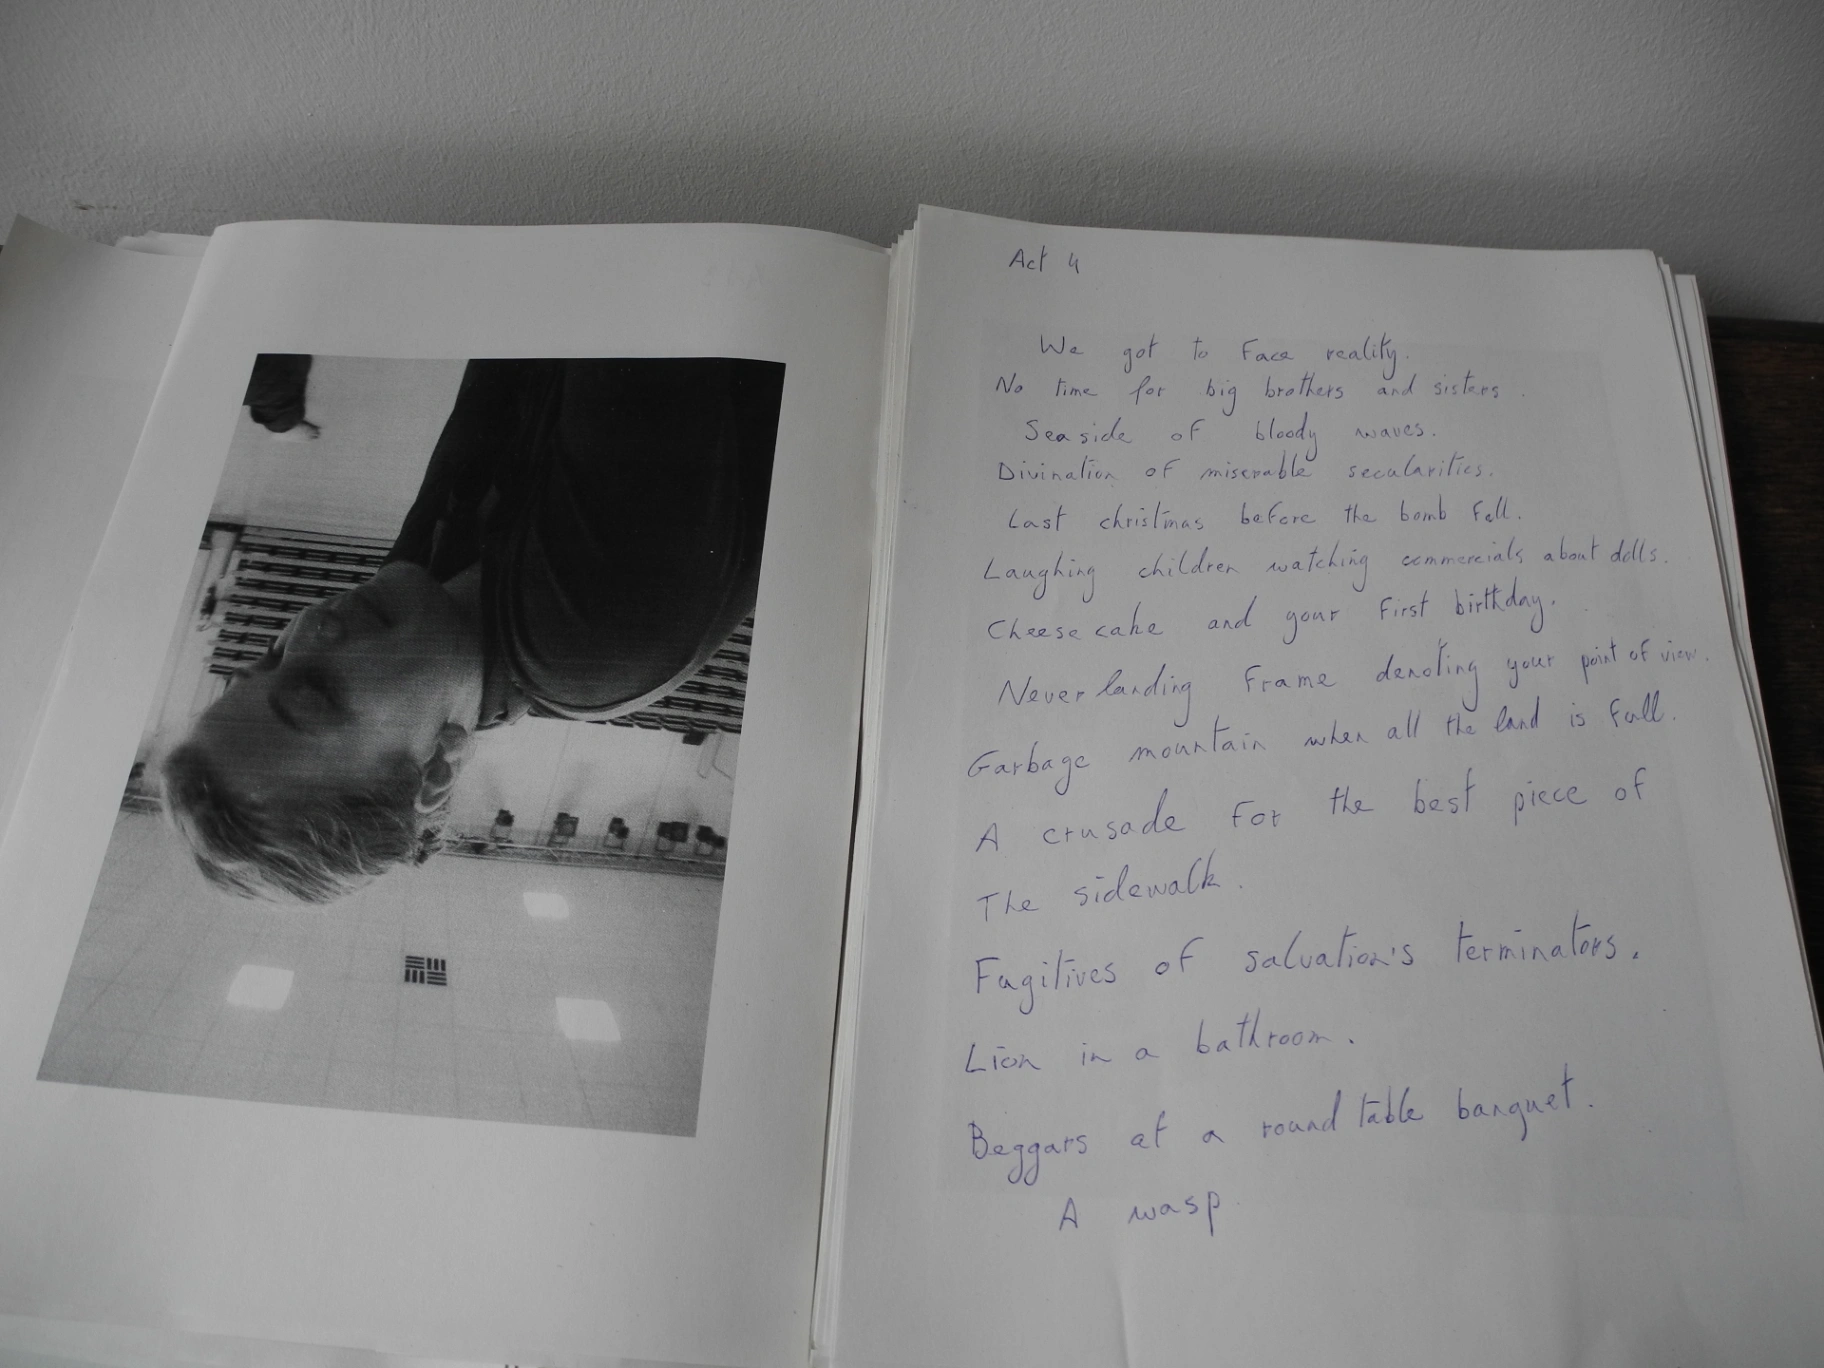 Act 4
We got to Face reality.
No time for big brothers and sisters.
Seaside of bloody waves.
Divination of miserable secularities.
Last christmas before the bomb fell.
Laughing children watching commercials about dolls.
Cheese cake and your first birthday.
Never landing Frame denoting your point of view.
Garbage mountain when all the land is full.
A crusade for the best piece of
The sidewalk.
Fugitives of salvation's terminators.
Lion in a bathroom.
Beggars at a round table banquet.
A wasp